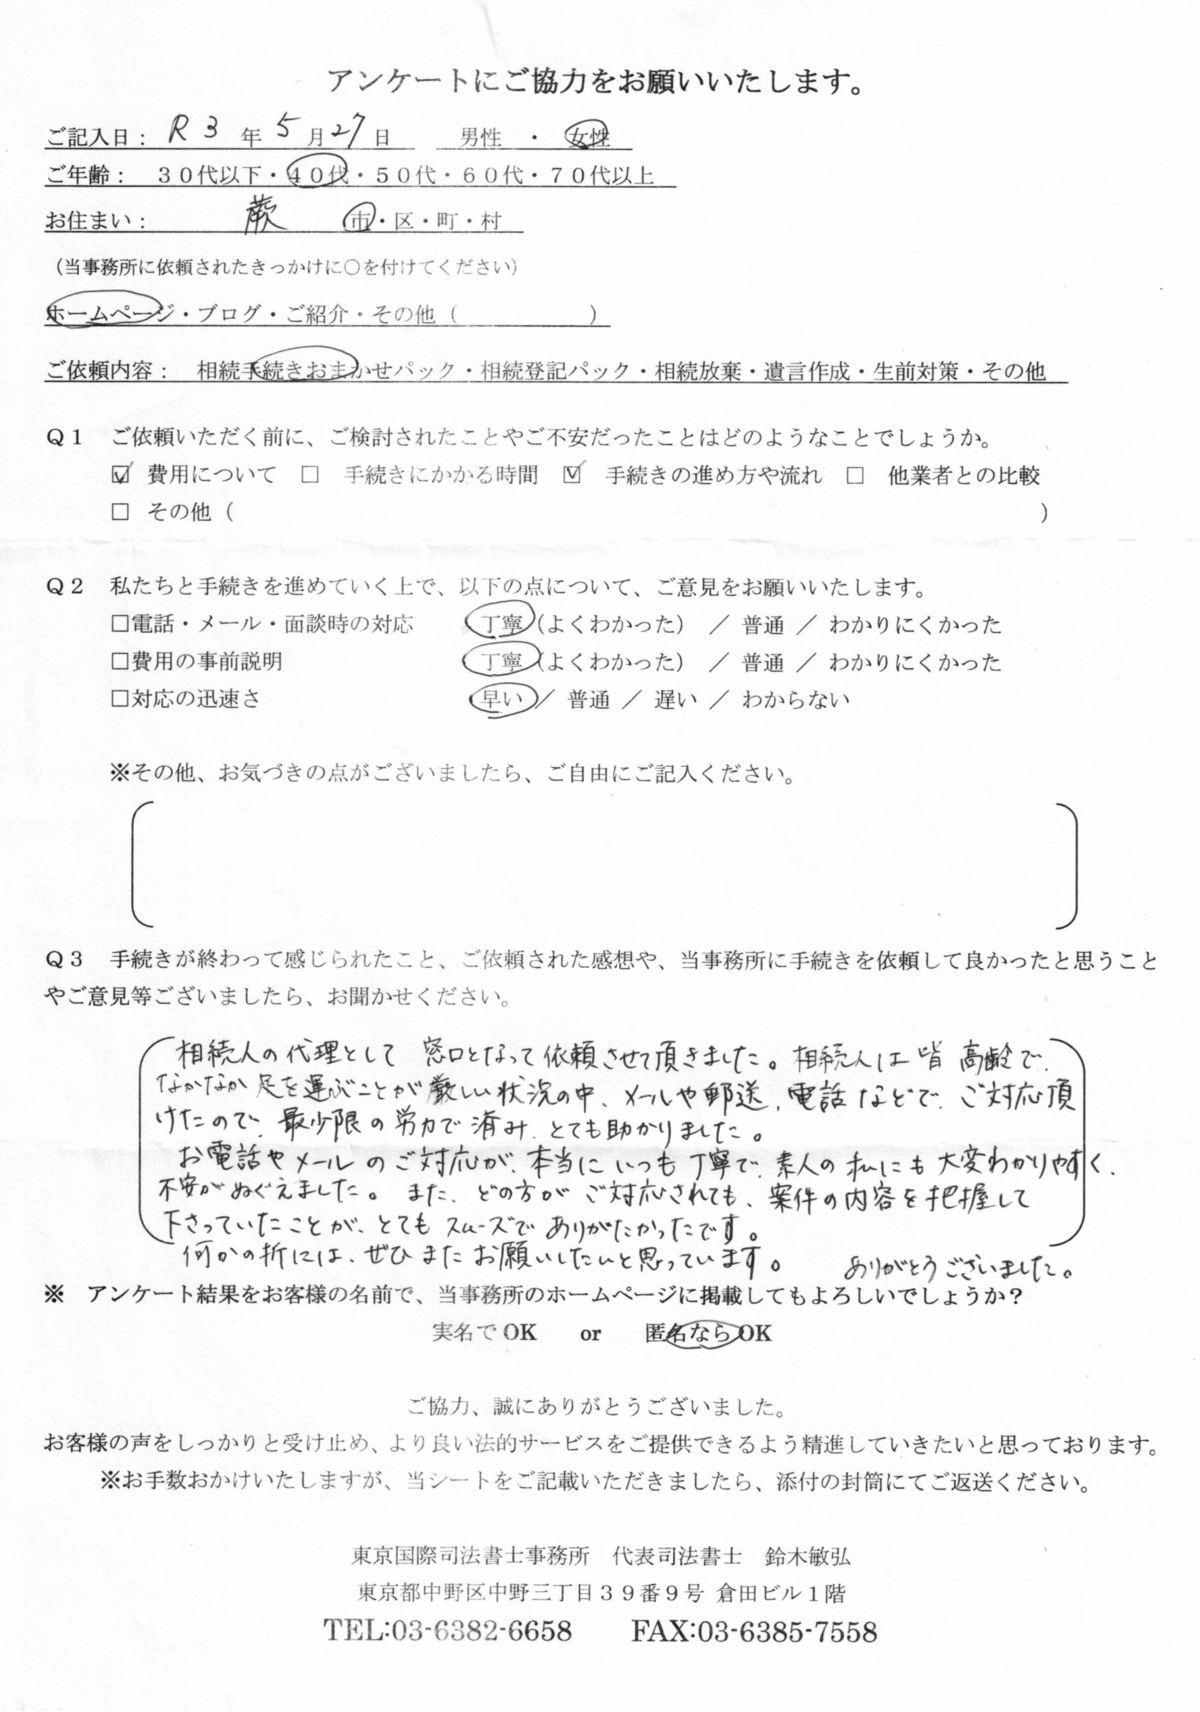 アンケートにご協力をお願いいたします。
ご記入日： R3 年 5 月 27 日　男性 ・ 女性
ご年齢：　３０代以下・４０代・５０代・６０代・７０代以上
お住まい：　蕨　市・区・町・村
（当事務所に依頼されたきっかけに○を付けてください）
ホームページ・ブログ・ご紹介・その他（　　　　　　）
ご依頼内容：　相続手続きおまかせパック・相続登記パック・相続放棄・遺言作成・生前対策・その他
Ｑ１　ご依頼いただく前に、ご検討されたことやご不安だったことはどのようなことでしょうか。
☑ 費用について　□　手続きにかかる時間　☑　手続きの進め方や流れ　□　他業者との比較
□ その他（　　　　　　　　　　　　　　　　　　）
Ｑ２　私たちと手続きを進めていく上で、以下の点について、ご意見をお願いいたします。
□電話・メール・面談時の対応　　丁寧（よくわかった） ／ 普通 ／ わかりにくかった
□費用の事前説明　　丁寧（よくわかった） ／ 普通 ／ わかりにくかった
□対応の迅速さ　　早い／ 普通 ／ 遅い ／ わからない
※その他、お気づきの点がございましたら、ご自由にご記入ください。
Ｑ３　手続きが終わって感じられたこと、ご依頼された感想や、当事務所に手続きを依頼して良かったと思うこと
やご意見等ございましたら、お聞かせください。
相続人の代理として 窓口となって依頼させて頂きました。相続人は皆 高齢で、
なかなか足を運ぶことが厳しい状況の中、メールや郵送、電話などで、ご対応頂
けたので、最少限の労力で済み、とても助かりました。
お電話やメールのご対応が、本当にいつも丁寧で、素人の私にも大変わかりやすく、
不安がぬぐえました。また、どの方がご対応されても、案件の内容を把握して
下さっていたことが、とてもスムーズでありがたかったです。
何かの折には、ぜひまたお願いしたいと思っています。　ありがとうございました。
※　アンケート結果をお客様の名前で、当事務所のホームページに掲載してもよろしいでしょうか？
実名でOK　or　匿名ならOK
ご協力、誠にありがとうございました。
お客様の声をしっかりと受け止め、より良い法的サービスをご提供できるよう精進していきたいと思っております。
※お手数おかけいたしますが、当シートをご記載いただきましたら、添付の封筒にてご返送ください。
東京国際司法書士事務所　代表司法書士　鈴木敏弘
東京都中野区中野三丁目３９番９号 倉田ビル１階
TEL:03-6382-6658　FAX:03-6385-7558